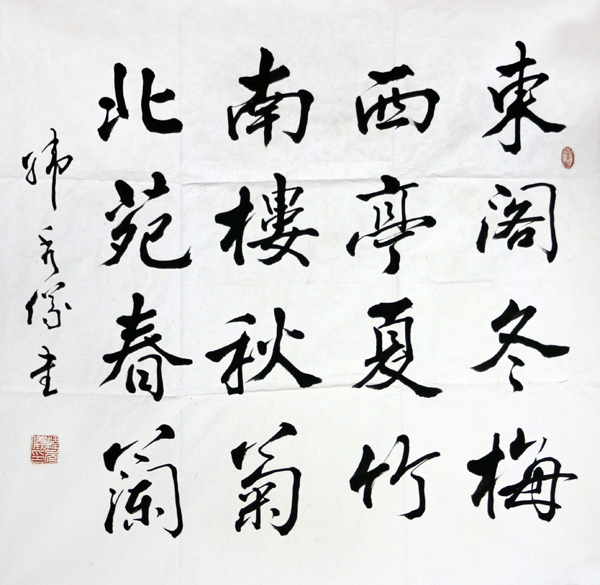 東閣冬梅
西亭夏竹
南樓秋菊
北苑春蘭